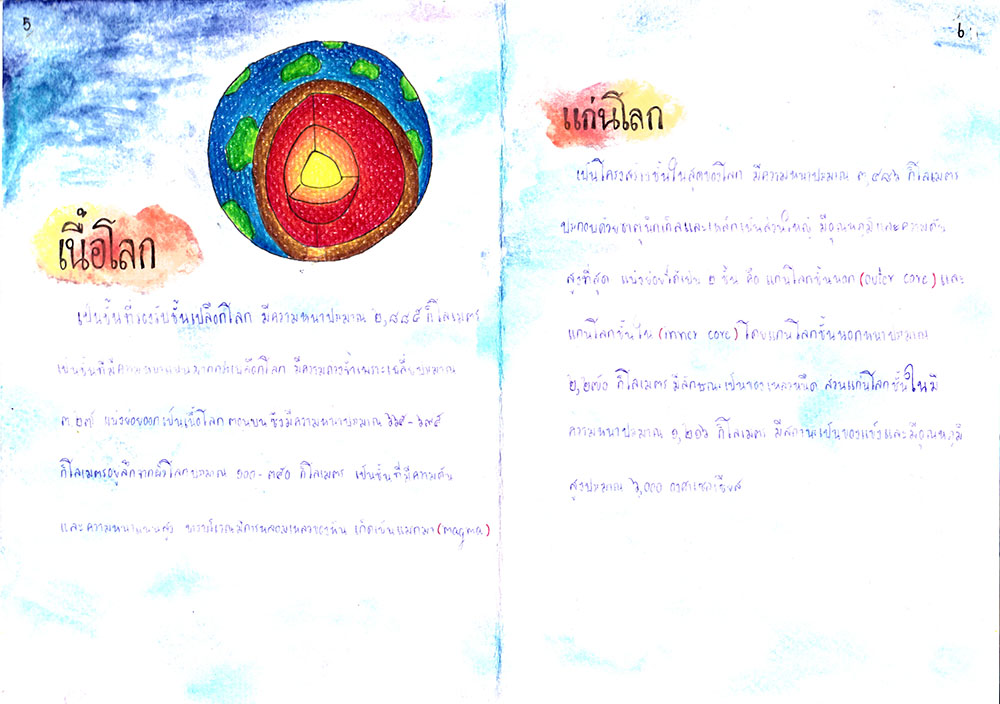 5
เนื้อโลก
เป็นชั้นที่รองรับชั้นเปลือกโลก มีความหนาประมาณ ๒,๘๘๕ กิโลเมตร
เป็นชั้นที่มีความหนาแน่นมากกว่าเปลือกโลก มีความถ่วงจำเพาะเฉลี่ยประมาณ
แบ่งย่อยออกเป็นเนื้อโลก ตอนบน ซึ่งมีความหนาประมาณ ๖๖๕ - ๖๙๕
กิโลเมตรอยู่ลึกจากผิวโลกประมาณ ๑๐๐ - ๓๕๐ กิโลเมตร เป็นชั้นที่มีความดัน
และความหนาแน่นสูง บางบริเวณมีการหลอมเหลวของหิน เกิดเป็นแมกมา (magma)
6
แก่นโลก
เป็นโครงสร้างชั้นในสุดของโลก มีความหนาประมาณ ๓,๔๘๖ กิโลเมตร
ประกอบด้วยธาตุนิกเกิลและเหล็กเป็นส่วนใหญ่ มีอุณหภูมิและความดัน
สูงที่สุด แบ่งย่อยได้เป็น ๒ ชั้น คือ แก่นโลกชั้นนอก (outer core) และ
แก่นโลกชั้นใน (inner core) โดยแก่นโลกชั้นนอกหนาประมาณ
๒,๒๗๐ กิโลเมตร มีลักษณะเป็นของเหลวหนืด ส่วนแก่นโลกชั้นในมี
ความหนาประมาณ ๑,๒๑๖ กิโลเมตร มีสถานะเป็นของแข็งและมีอุณหภูมิ
สูงประมาณ ๖,๐๐๐ องศาเซลเซียส